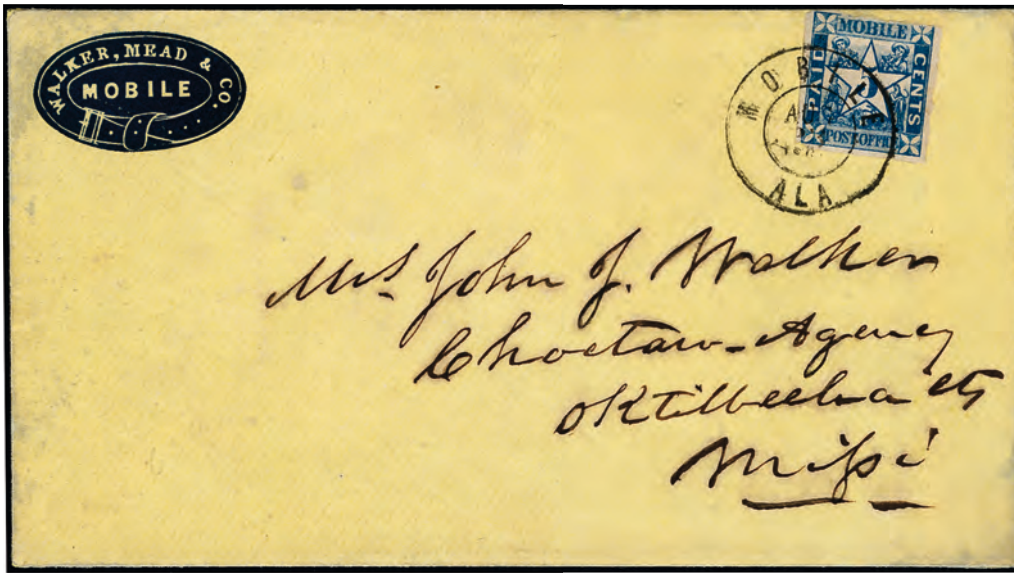 WALKER, MEAD & CO.
MOBILE
MOBILE
PAID
5
CENTS
POST OFFICE
MOBILE
ALA
Mrs John J. Walker
Choctaw-Agency
Oktibbeha Cty
Missi